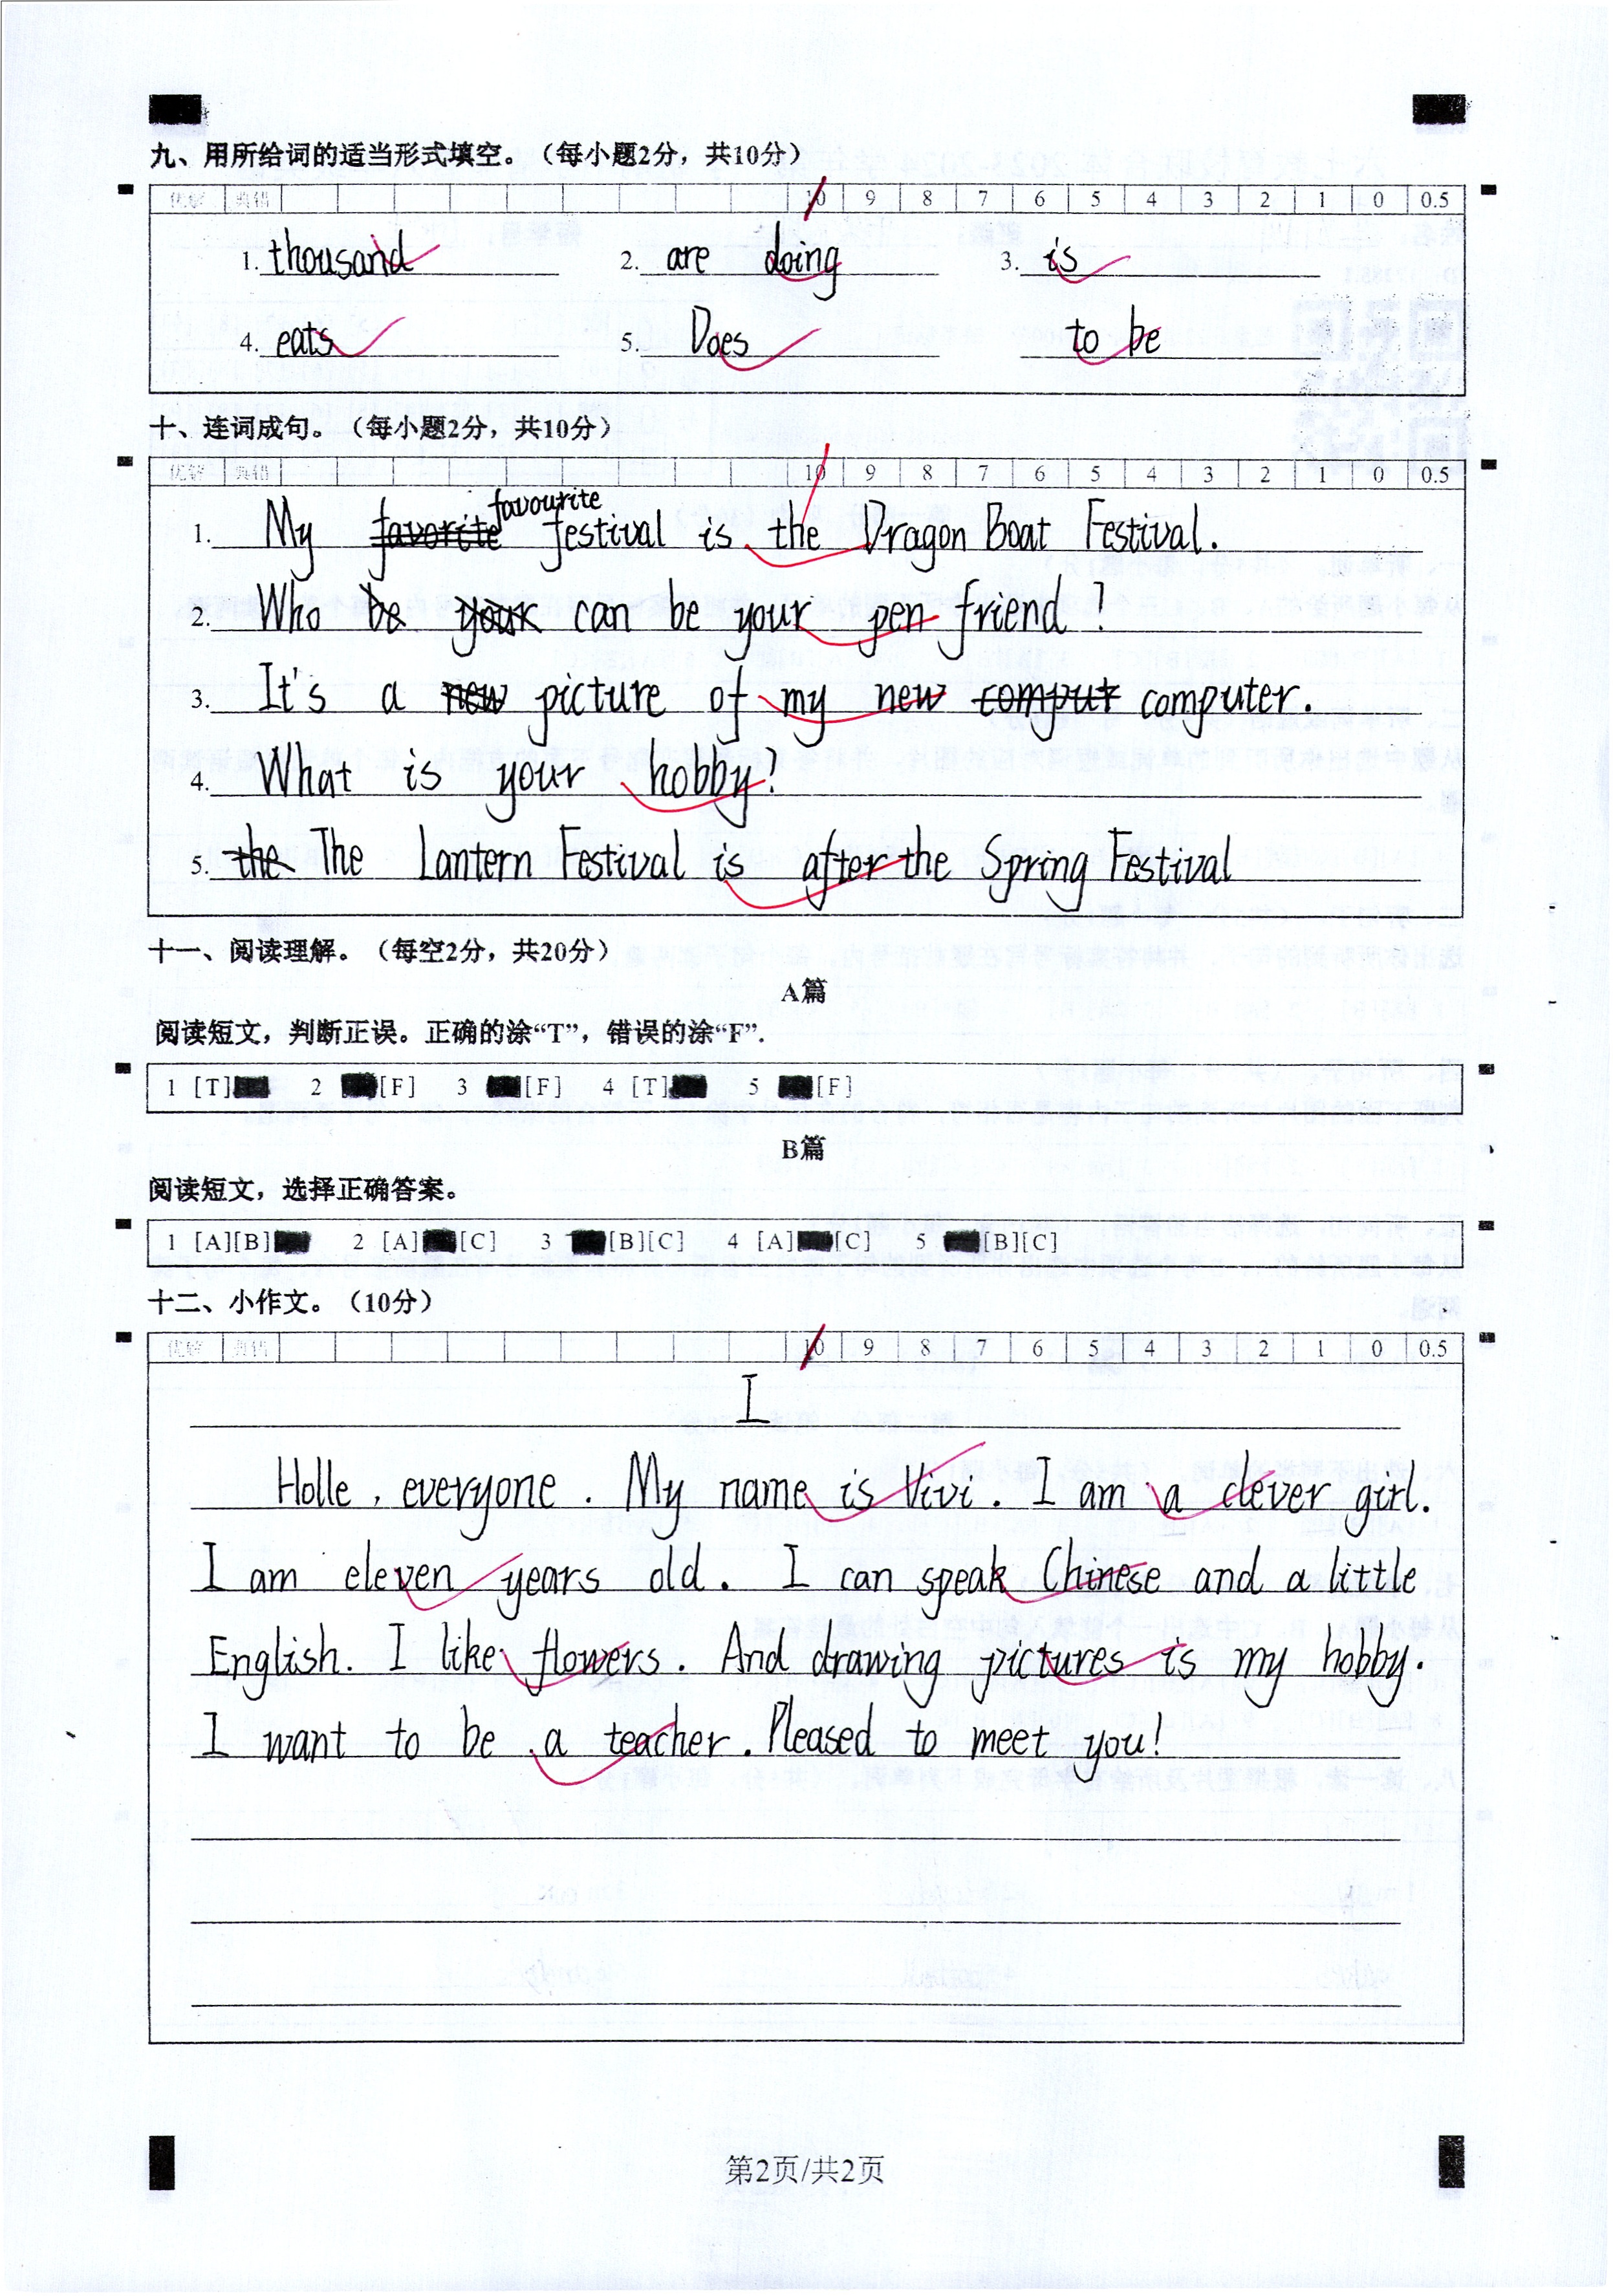 九、用所给词的适当形式填空。（每小题2分，共10分）
优解 典错 10 9 8 7 6 5 4 3 2 1 0 0.5
1. thousand 2. are doing 3. is
4. eats 5. Does to be
十、连词成句。（每小题2分，共10分）
优解 典错 10 9 8 7 6 5 4 3 2 1 0 0.5
favourite
1. My favorite festival is the Dragon Boat Festival.
2. Who be your can be your pen friend?
3. It's a new picture of my new comput computer.
4. What is your hobby?
5. the The Lantern Festival is after the Spring Festival
十一、阅读理解。（每空2分，共20分）
A篇
阅读短文，判断正误。正确的涂“T”，错误的涂“F”.
1 [T] 2 [F] 3 [F] 4 [T] 5 [F]
B篇
阅读短文，选择正确答案。
1 [A][B] 2 [A] [C] 3 [B][C] 4 [A] [C] 5 [B][C]
十二、小作文。（10分）
优解 典错 10 9 8 7 6 5 4 3 2 1 0 0.5
I
Holle, everyone. My name is Vivi. I am a clever girl.
I am eleven years old. I can speak Chinese and a little
English. I like flowers. And drawing pictures is my hobby.
I want to be a teacher. Pleased to meet you!
第2页/共2页